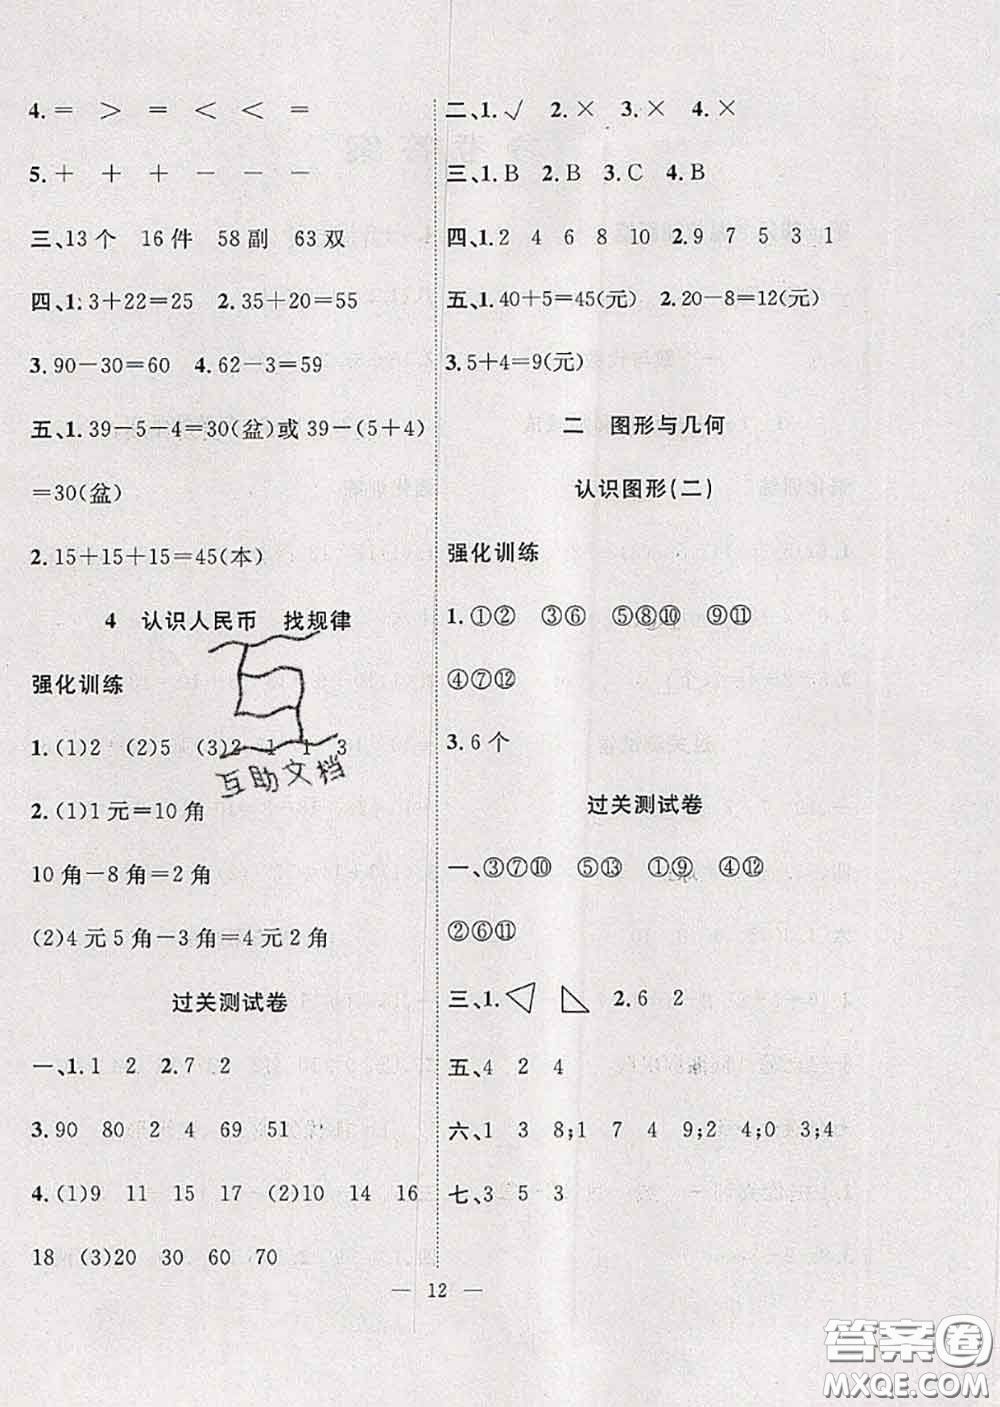 4.＝ ＞ ＝ ＜ ＜ ＝
5.＋ ＋ ＋ － － －
三、13个 16件 58副 63双
四、1.3＋22＝25 2.35＋20＝55
3.90－30＝60 4.62－3＝59
五、1.39－5－4＝30(盆)或39－(5＋4)
＝30(盆)
2.15＋15＋15＝45(本)
4 认识人民币 找规律
强化训练
1.(1)2 (2)5 (3)2 1 1 3
互助文档
2.(1)1元＝10角
10角－8角＝2角
(2)4元5角－3角＝4元2角
过关测试卷
一、1.1 2 2.7 2
3.90 80 2 4 69 51
4.(1)9 11 15 17 (2)10 14 16
18 (3)20 30 60 70
二、1.√ 2.× 3.× 4.×
三、1.B 2.B 3.C 4.B
四、1.2 4 6 8 10 2.9 7 5 3 1
五、1.40＋5＝45(元) 2.20－8＝12(元)
3.5＋4＝9(元)
二 图形与几何
认识图形(二)
强化训练
1.①② ③⑥ ⑤⑧⑩ ⑨⑪
④⑦⑫
3.6个
过关测试卷
一、③⑦⑩ ⑤⑬ ①⑨ ④⑫
②⑥⑪
三、1. 2.6 2
五、4 2 4
六、1 3 8;1 7 4 9;2 4;0 3;4
七、3 5 3
— 12 —
答案卷
MXQE.COM